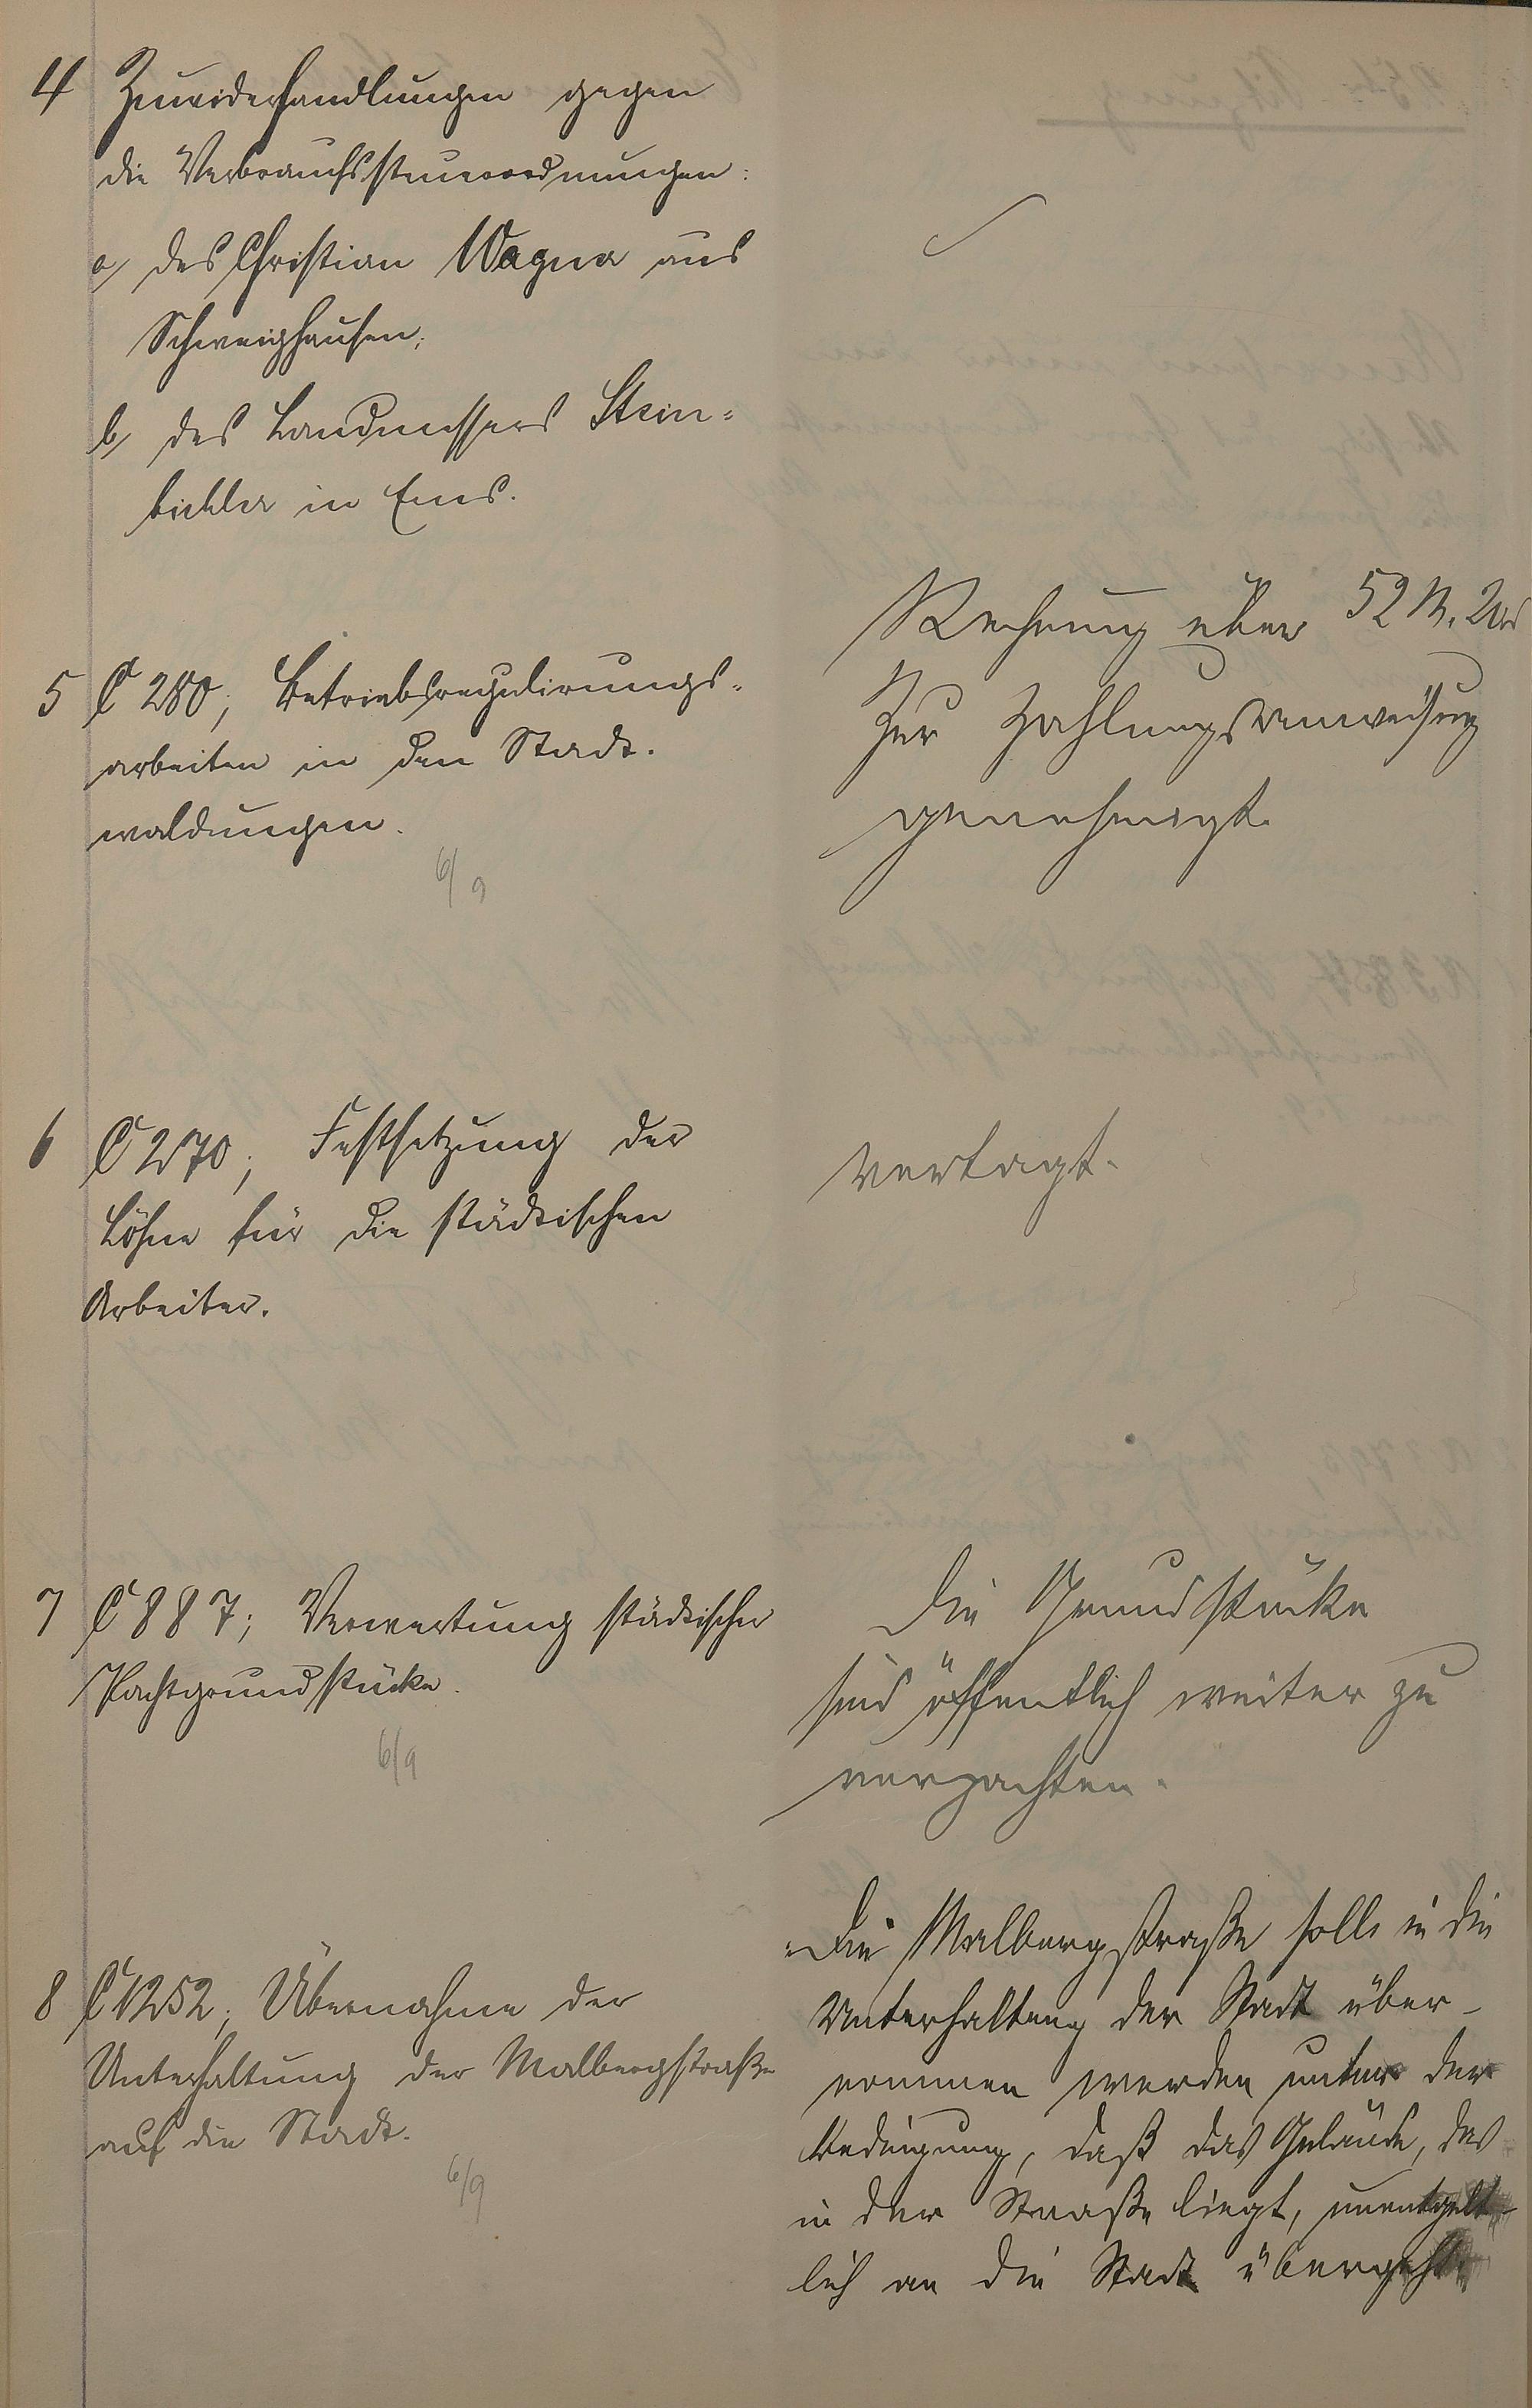 4 Zuwiderhandlungen gegen
die Verbrauchssteuerordnungen:
a, des Christian Wagner aus
Schweighausen;
b, des Landmessers Stein-
bichler in Ems.
5 C 280; Betriebsregulirungs-
arbeiten in den Stadt-
waldungen.
6/9
Rechnung über 52 M.
zur Zahlungsanweisung
genehmigt.
6 C 270; Festsetzung der
Löhne für die städtischen
Arbeiter.
vertagt.
7 C 887; Verwertung städtischer
Pachtgrundstücke.
6/9
Die Grundstücke
sind öffentlich weiter zu
verpachten.
8 C 1252; Übernahme der
Unterhaltung der Malbergstraße
auf die Stadt.
6/9
Die Malbergstraße soll in die
Unterhaltung der Stadt über-
nommen werden unter der
Bedingung, daß das Gelände, das
in der Straße liegt, unentgelt-
lich an die Stadt übergeht.